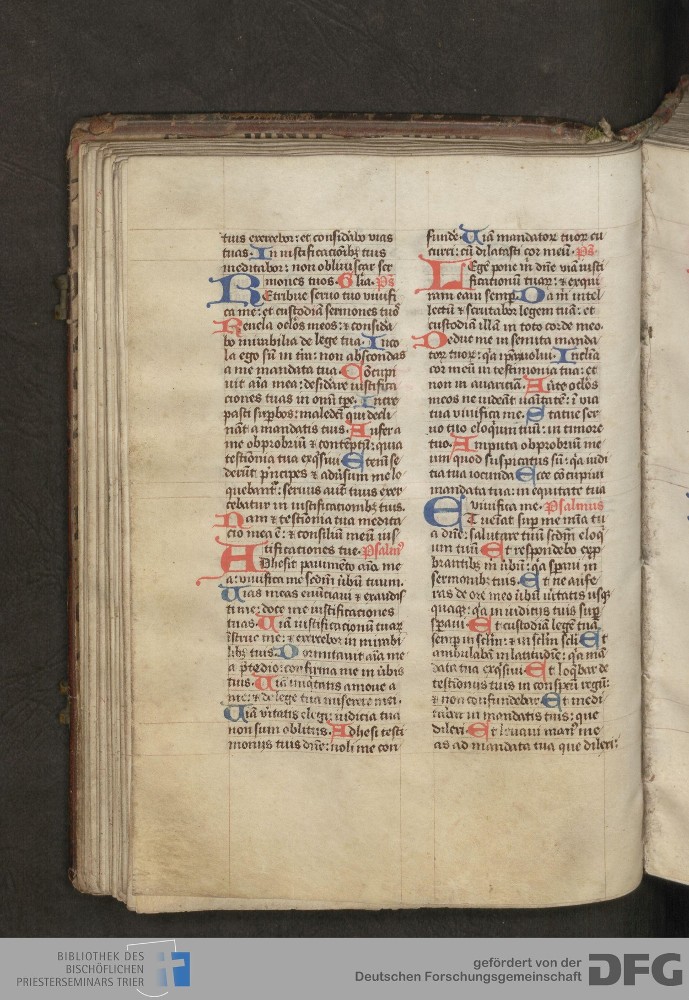 tuis exercebor: et considabo vias
tuas. In iustificacioibꝫ tuis
meditabor: non obliuiscar ser
mones tuos. Glia. Ps
REtribue seruo tuo viuifi
ca me: et custodia sermones tuos
Reuela oclos meos: ⁊ consida
bo mirabilia de lege tua. Inco
la ego su in tra: non abscondas
a me mandata tua. Cocupi
uit aia mea: desidare iustifica
ciones tuas in omi tpe. Incre
pasti suprbos: maledci qui decli
nat a mandatis tuis. Aufer a
me obprobriu ⁊ conteptu: quia
testionia tua exqsiui. Etem se
derut principes ⁊ adusum me lo
quebant: seruus aut tuus exer
cebatur in iustificationibꝫ tuis.
Nam ⁊ testionia tua medita
cio mea e: ⁊ consiliu meu ius
tificationes tue. Psalm
ADhesit pauimeto aia me
a: viuifica me scdm ubu tuum.
Uias meas enuciaui ⁊ exaudis
ti me: doce me iustificaciones
tuas. Uia iustificacionu tuar
istrue me: ⁊ exercebor in mirabi
libꝫ tuis. Dormitauit aia me
a pre tedio: confirma me in ubis
tuis. Uia iniqtatis amoue a
me: ⁊ de lege tua miserere mei.
Uia uitatis elegi: iudicia tua
non sum oblitus. Adhesi testi
moniis tuis dne: noli me con
funde. Uia mandator tuor cu
curri: cu dilatasti cor meu. Ps.
LEge pone m dne via iusti
ficationu tuar: ⁊ exqui
ram eam semp. Da m intel
lectu ⁊ scrutabor legem tua: et
custodia illa in toto corde meo.
Deduc me in semita manda
tor tuor: qa ipam uolui. Inclia
cor meu in testimonia tua: et
non in auaricia. Aute oclos
meos ne uideat uaitate: i via
tua viuifica me. Statue ser
uo tuo eloquiu tuu: in timore
tuo. Amputa obprobriu me
um quod suspicatus su: qa iudi
cia tua iocunda. Ecce cocupiui
mandata tua: in equitate tua
viuifica me. Psalmus
ET ueiat sup me mia tu
a dne: salutare tuu scdm eloq
uium tuu. Et respondebo exp
brantibꝫ m ubu: qa spaui in
sermonibꝫ tuis. Et ne aufe
ras de ore meo ubu uitatis usqꝫ
quaqꝫ: qa in iudiciis tuis sup
spaui. Et custodia lege tua
semp in seclm: ⁊ in seclm scli. Et
ambulaba in latitudie: qa ma
data tua exqsiui. Et loqbar de
testioniis tuis in conspcu regu:
⁊ non confundebar. Et medi
tabar in mandatis tuis: que
dilexi. Et leuaui man9 me
as ad mandata tua que dilexi:
BIBLIOTHEK DES
BISCHÖFLICHEN
PRIESTERSEMINARS TRIER
gefördert von der
Deutschen Forschungsgemeinschaft
DFG